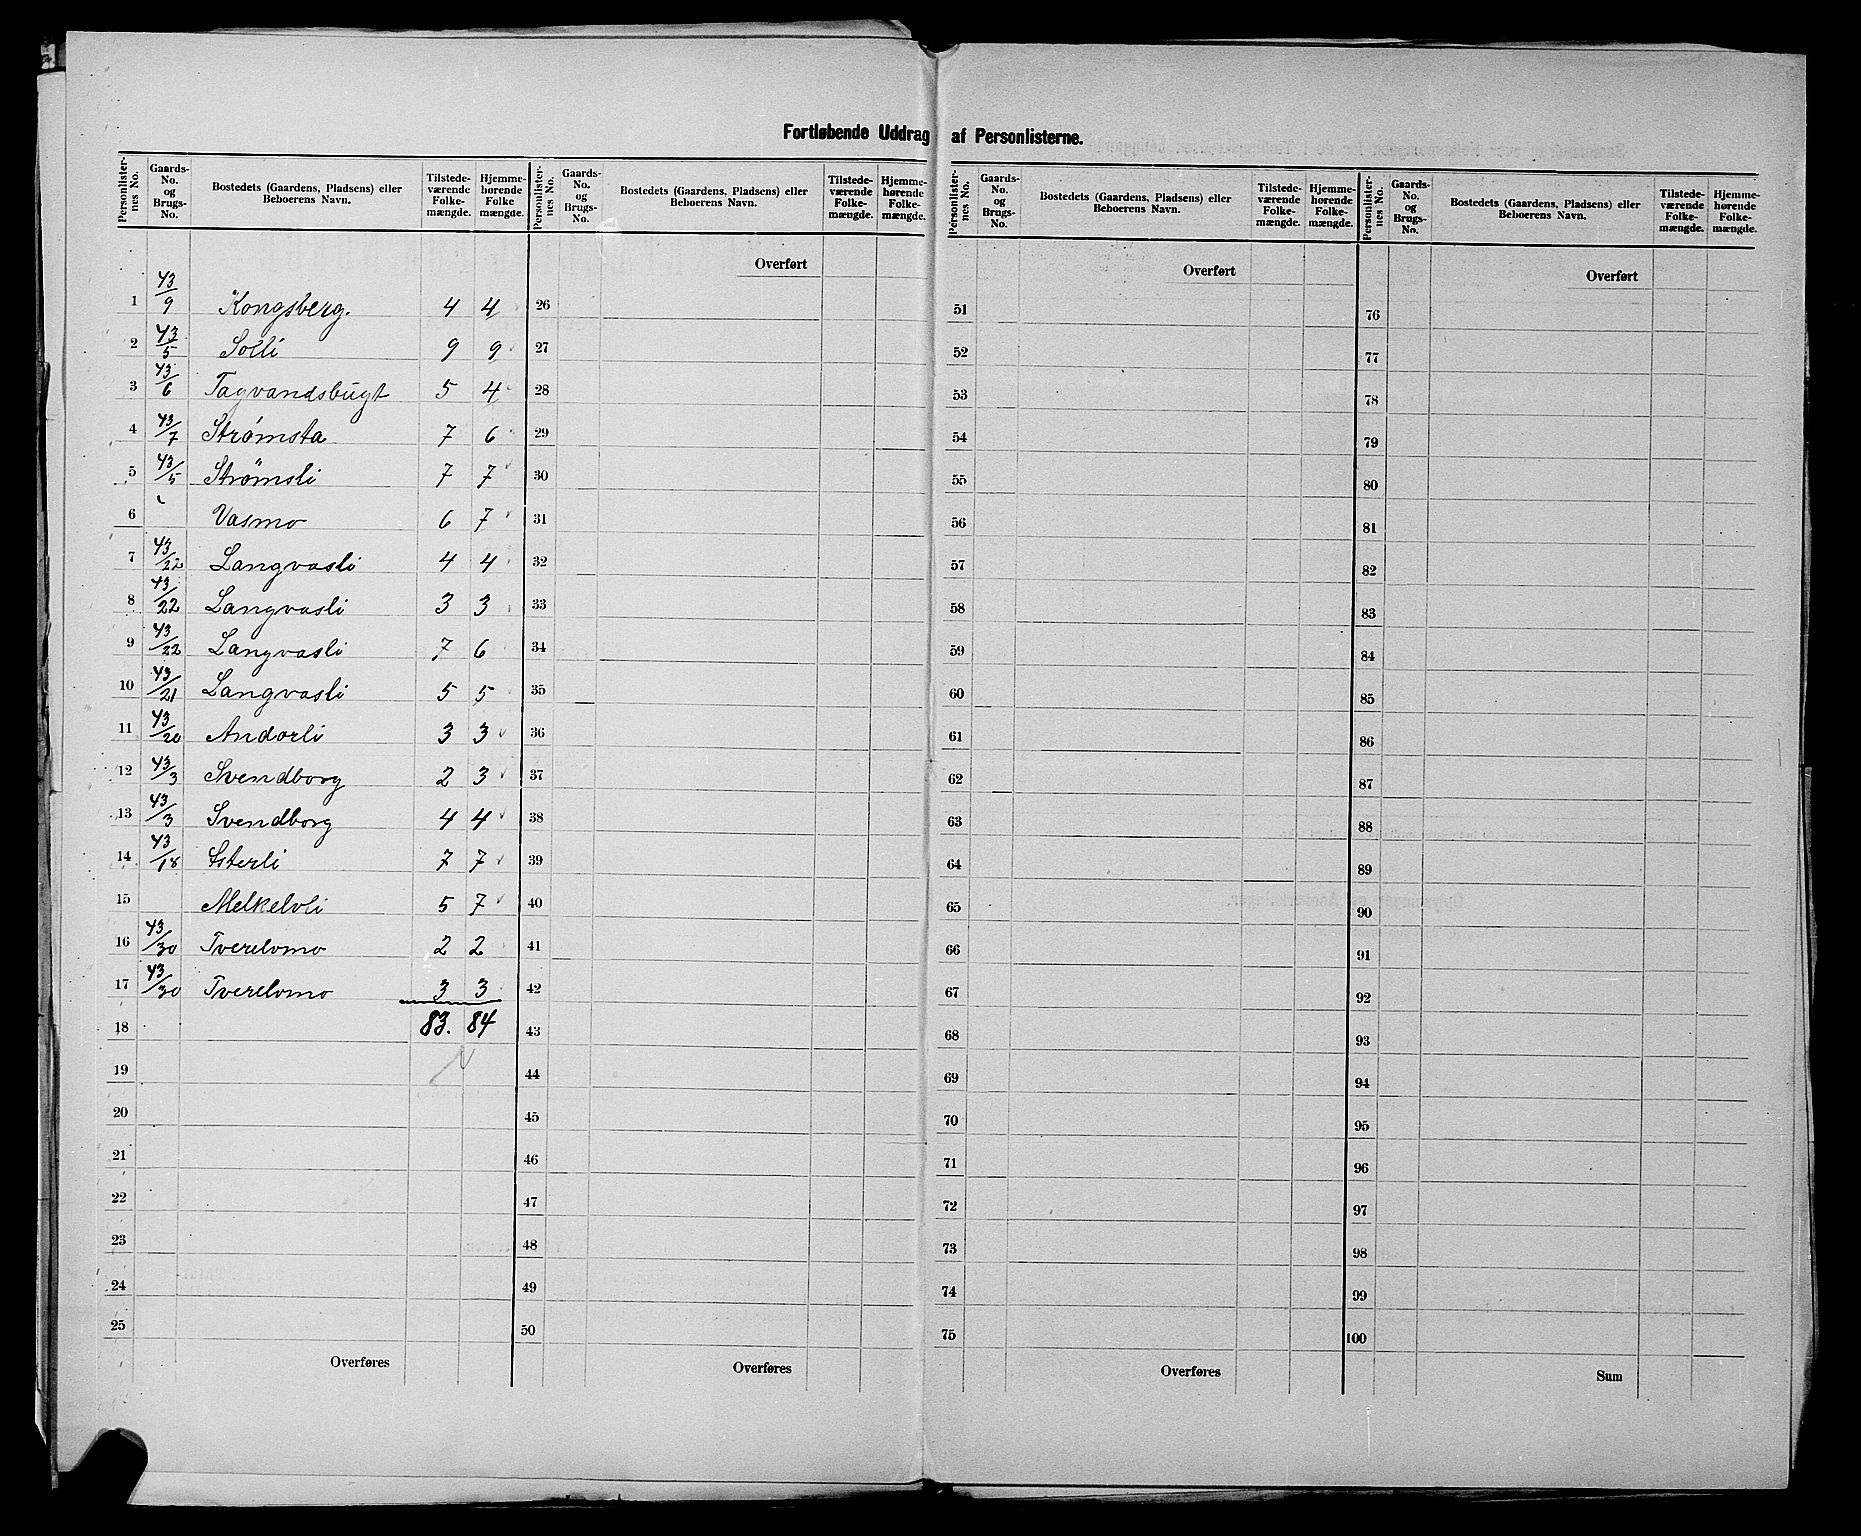 Fortløbende Uddrag af Personlisterne.
Personlister-nes No. | Gaards-No. og Brugs-No. | Bostedets (Gaardens, Pladsens) eller Beboerens Navn. | Tilstede-værende Folke-mængde. | Hjemme-hørende Folke mængde.
1 43/9 Kongsberg. 4 4
2 43/5 Solli 9 9
3 43/6 Tagvandsbugt 5 4
4 43/7 Strømsta 7 6
5 43/5 Strömsli 7 7
6 Vasmo 6 7
7 43/22 Langvasli 4 4
8 43/22 Langvasli 3 3
9 43/22 Langvasli 7 6
10 43/21 Langvasli 5 5
11 43/20 Andorli 3 3
12 43/3 Svendborg 2 3
13 43/3 Svendborg 4 4
14 43/18 Isterli 7 7
15 Melkelvli 5 7
16 43/30 Tverelvmo 2 2
17 43/30 Tverelvmo 3 3
18 83. 84
19
20
21
22
23
24
25
Overføres
Personlister-nes No. | Gaards-No. og Brugs-No. | Bostedets (Gaardens, Pladsens) eller Beboerens Navn. | Tilstede-værende Folke-mængde. | Hjemme-hørende Folke-mængde.
Overført
26
27
28
29
30
31
32
33
34
35
36
37
38
39
40
41
42
43
44
45
46
47
48
49
50
Overføres
Personlister-nes No. | Gaards-No. og Brugs-No. | Bostedets (Gaardens, Pladsens) eller Beboerens Navn. | Tilstede-værende Folke-mængde. | Hjemme-hørende Folke-mængde.
Overført
51
52
53
54
55
56
57
58
59
60
61
62
63
64
65
66
67
68
69
70
71
72
73
74
75
Overføres
Personlister-nes No. | Gaards-No. og Brugs-No. | Bostedets (Gaardens, Pladsens) eller Beboerens Navn. | Tilstede-værende Folke-mængde. | Hjemme-hørende Folke-mængde.
Overført
76
77
78
79
80
81
82
83
84
85
86
87
88
89
90
91
92
93
94
95
96
97
98
99
100
Sum